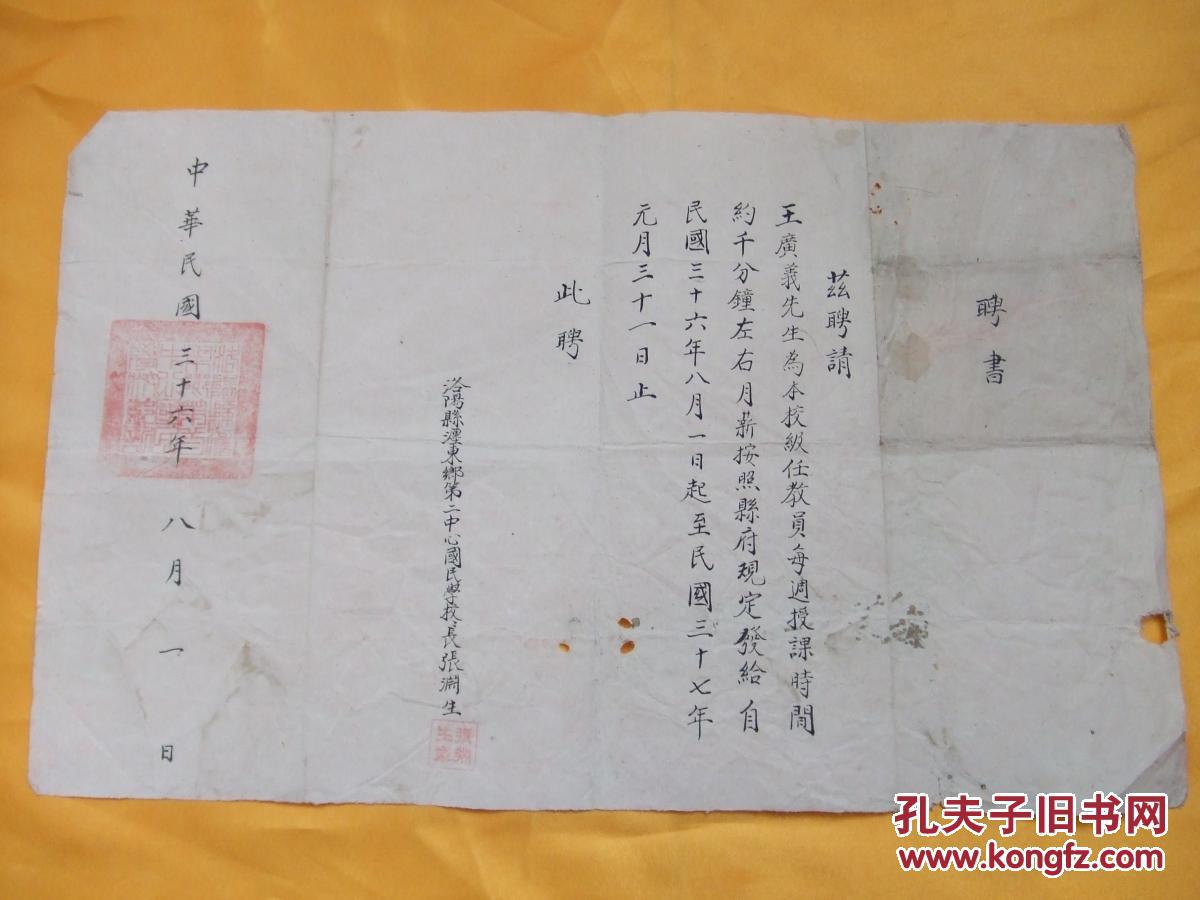 聘書
茲聘請
王廣義先生為本校級任教員每週授課時間
約千分鐘左右月薪按照縣府規定發給自
民國三十六年八月一日起至民國三十七年
元月三十一日止
此聘
洛陽縣瀍東鄉第二中心國民學校長張淵生
中華民國三十六年八月一日
孔夫子旧书网
www.kongfz.com